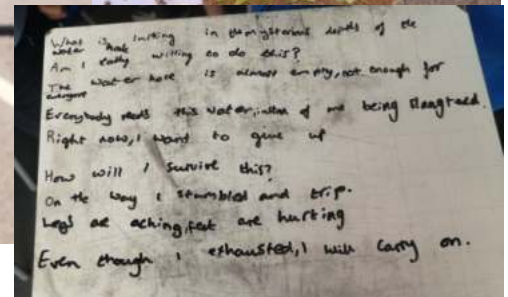 What is lurking in the mysterious depths of the
water hole
Am I really willing to do this?
The water hole is almost empty, not enough for
everyone
Everybody needs this water, of me being slaughtered.
Right now, I want to give up
How will I survive this?
On the way I stumbled and trip.
Legs are aching, feet are hurting
Even though I exhausted, I will carry on.